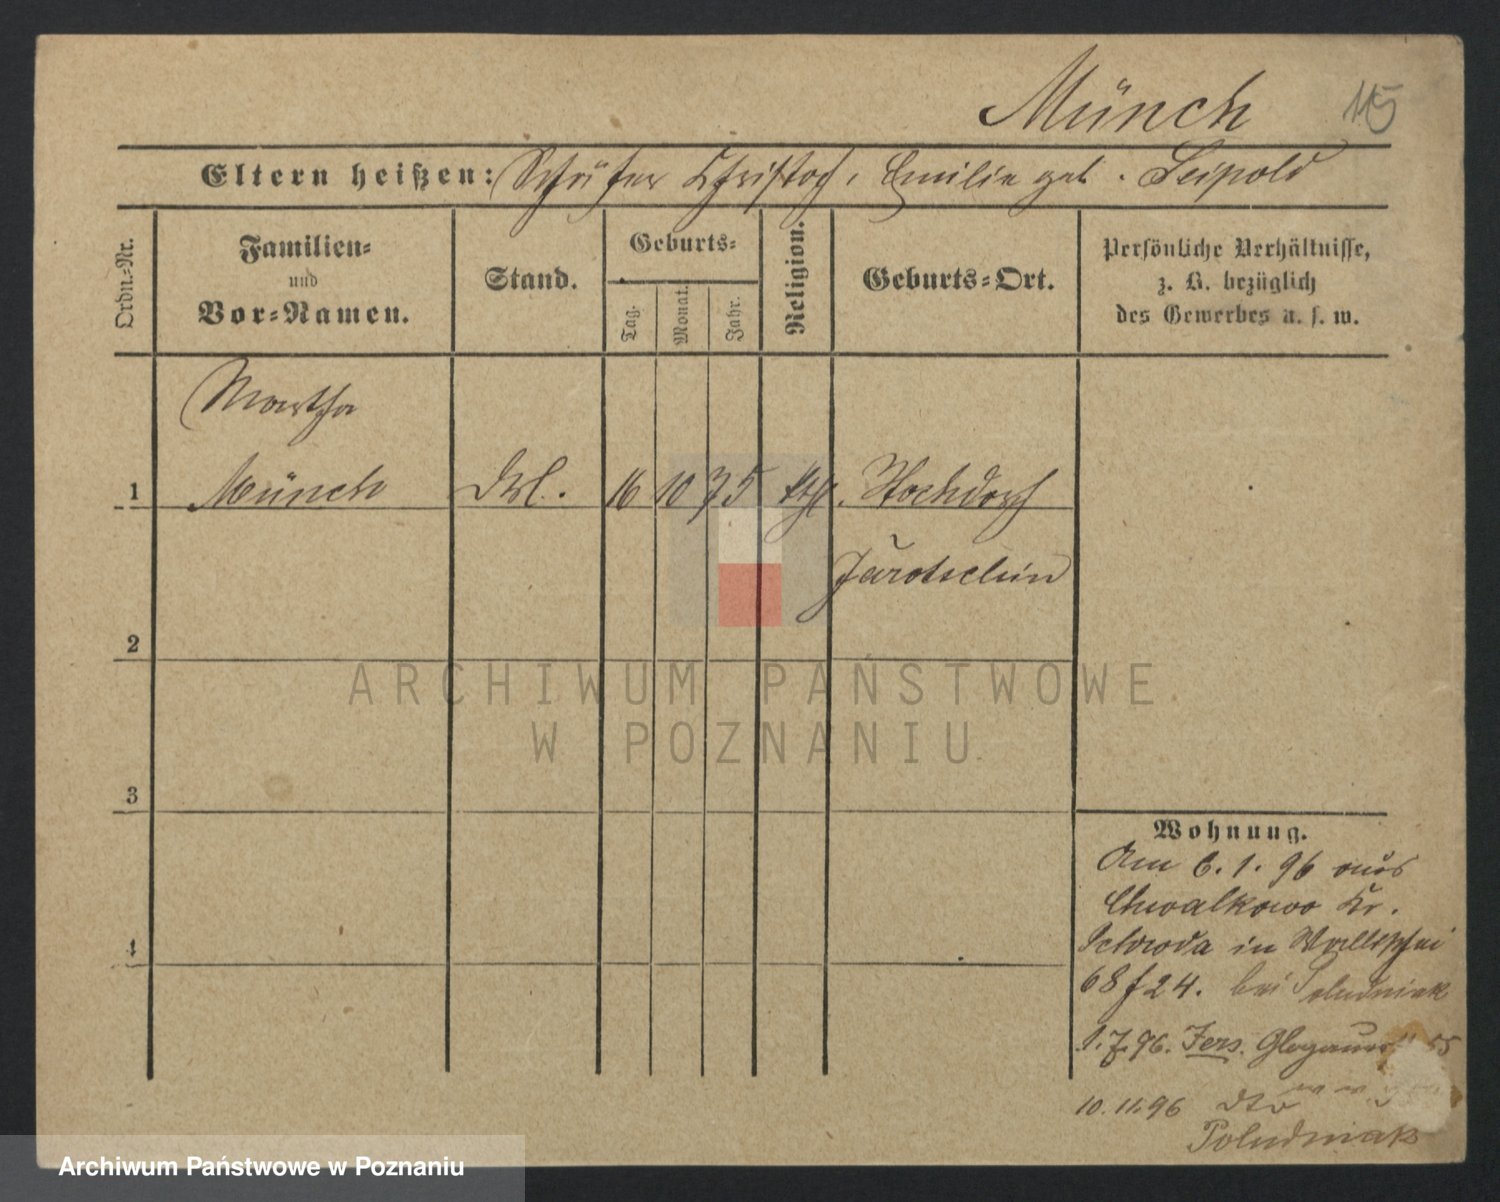 Münch 115
Eltern heißen: Schäfer Christof, Emilie geb. Leipold
Ordn.-Nr.
Familien-
und
Vor-Namen.
Stand.
Geburts-
Tag.
Monat.
Jahr.
Religion.
Geburts-Ort.
Persönliche Verhältnisse,
z. B. bezüglich
des Gewerbes u. s. w.
Martha
1 Münch 16 10 75 kth. Hochdorf
Jarotschin
2
ARCHIWUM PAŃSTWOWE
W POZNANIU
3
Wohnung.
Am 6.1.96 aus
Chwalkowo Kr.
Schroda in Wallischei
68 f 24. bei Poludniak
1.7.96. Jers. Glogauerstr 55
4
10.11.96 dto
Poludniak
Archiwum Państwowe w Poznaniu